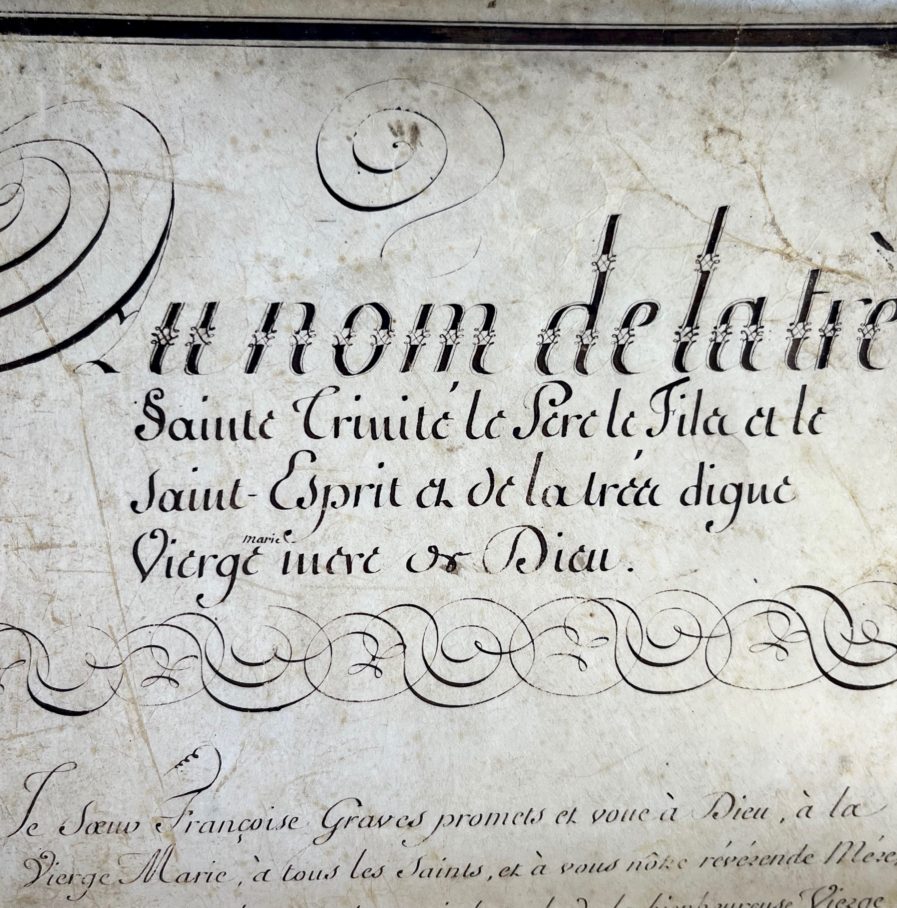 Au nom de la trè
Sainte Trinité le Pere le Fils et le
Saint-Esprit et de la trés digne
marie
Vierge mere de Dieu.
Je Sœur Françoise Graves promets et voue à Dieu, à la
Vierge Marie, à tous les Saints, et à vous nôtre révérende Mére,
de la bienheureuse Vierge